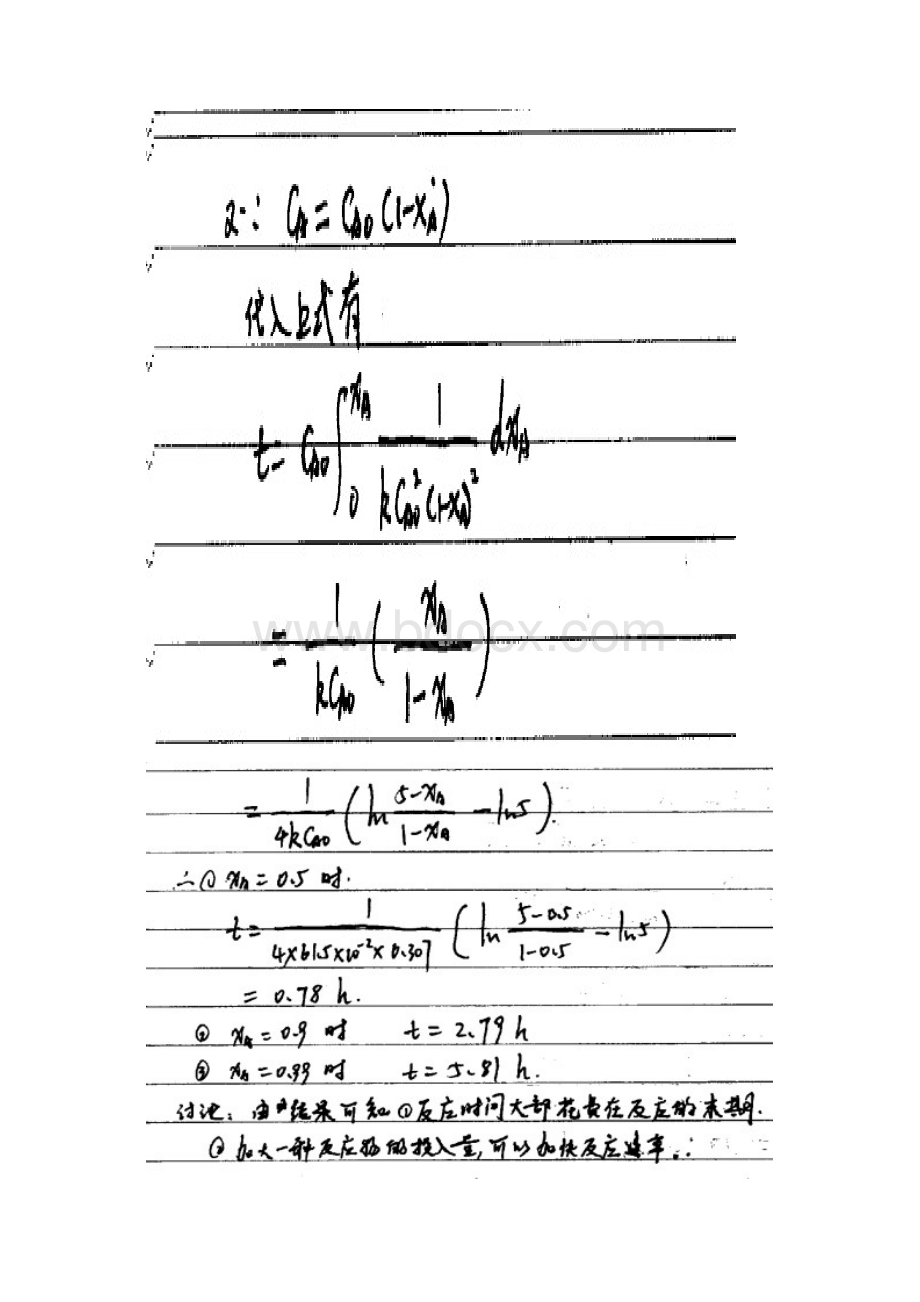 又∵ C_A = C_A0 (1-x_A)
代入上式有
t = C_A0 ∫_0^{x_A} 1/(kC_A0²(1-x_A)²) dx_A
= 1/(kC_A0) (x_A/(1-x_A))
www.bdocx.com
= 1/(4kC_A0) (ln (5-x_A)/(1-x_A) - ln5).
∴① x_A = 0.5 时.
t = 1/(4×61.5×10⁻²×0.307) (ln (5-0.5)/(1-0.5) - ln5)
= 0.78 h.
② x_A = 0.9 时 t = 2.79 h
③ x_A = 0.99 时 t = 5.81 h.
讨论: 由 结果可知 ①反应时间大部花费在反应的末期.
②加大一种反应物的投入量, 可以加快反应速率.